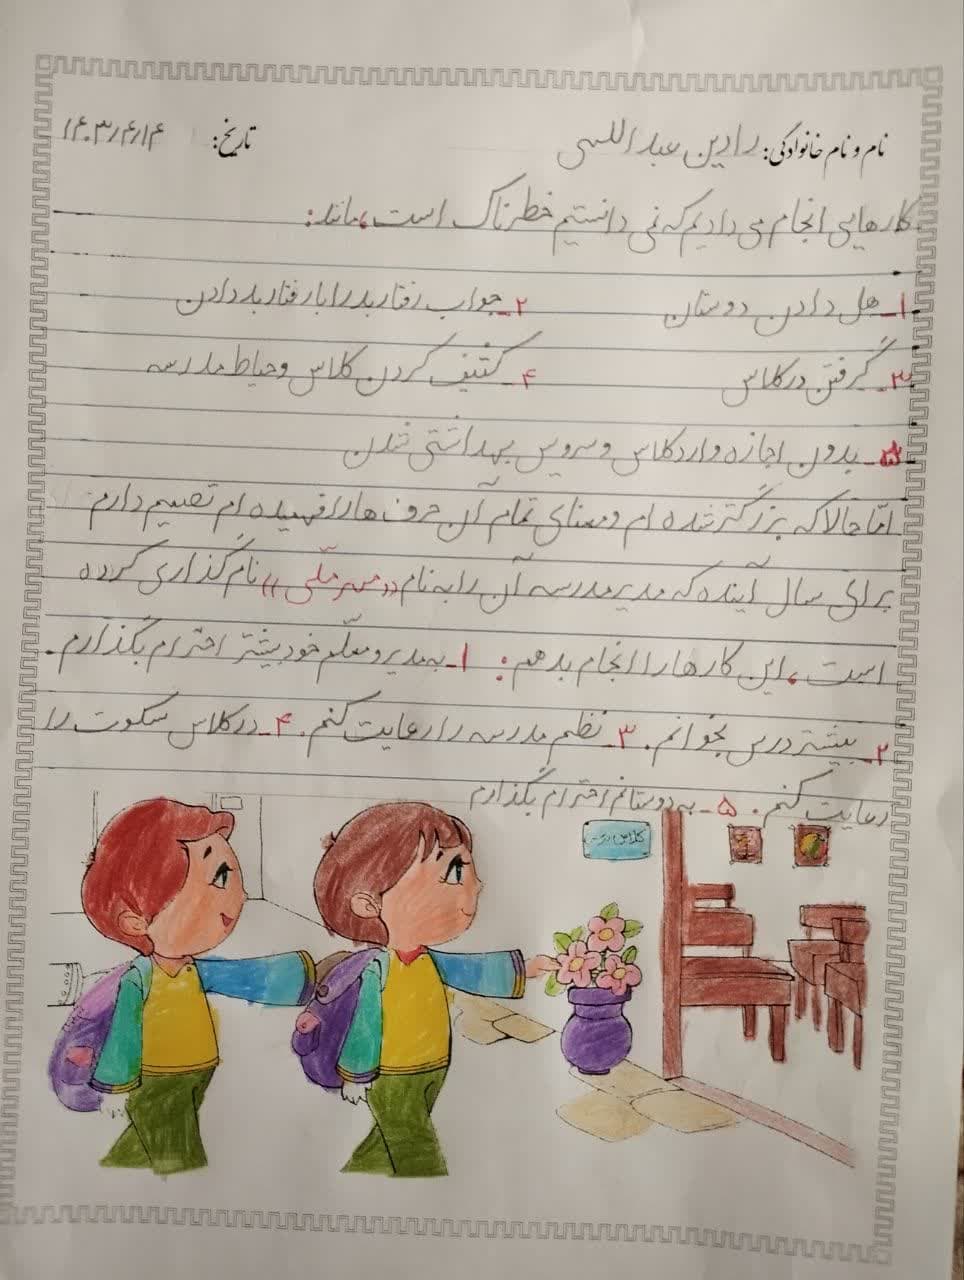 نام و نام خانوادگی: رادین عبداللهی تاریخ: ۱۴۰۳/۴/۱۴
کارهایی انجام می دادیم که نمی دانستیم خطرناک است، مانند:
۱_ هل دادن دوستان ۲_ جواب رفتار بد را با رفتار بد دادن
۳_ گرفتن در کلاس ۴_ کثیف کردن کلاس و حیاط مدرسه
۵_ بدون اجازه وارد کلاس و سرویس بهداشتی شدن
امّا حالا که بزرگتر شده ام و معنای تمام آن حرف ها را فهمیده ام تصمیم دارم
برای سال آینده که مدیر مدرسه آن را به نام «مهر ملّی» نام گذاری کرده
است، این کارها را انجام بدهم: ۱_ به مدیر و معلّم خود بیشتر احترام بگذارم.
۲_ بیشتر درس بخوانم. ۳_ نظم مدرسه را رعایت کنم. ۴_ در کلاس سکوت را
رعایت کنم. ۵_ به دوستانم احترام بگذارم
کلاس